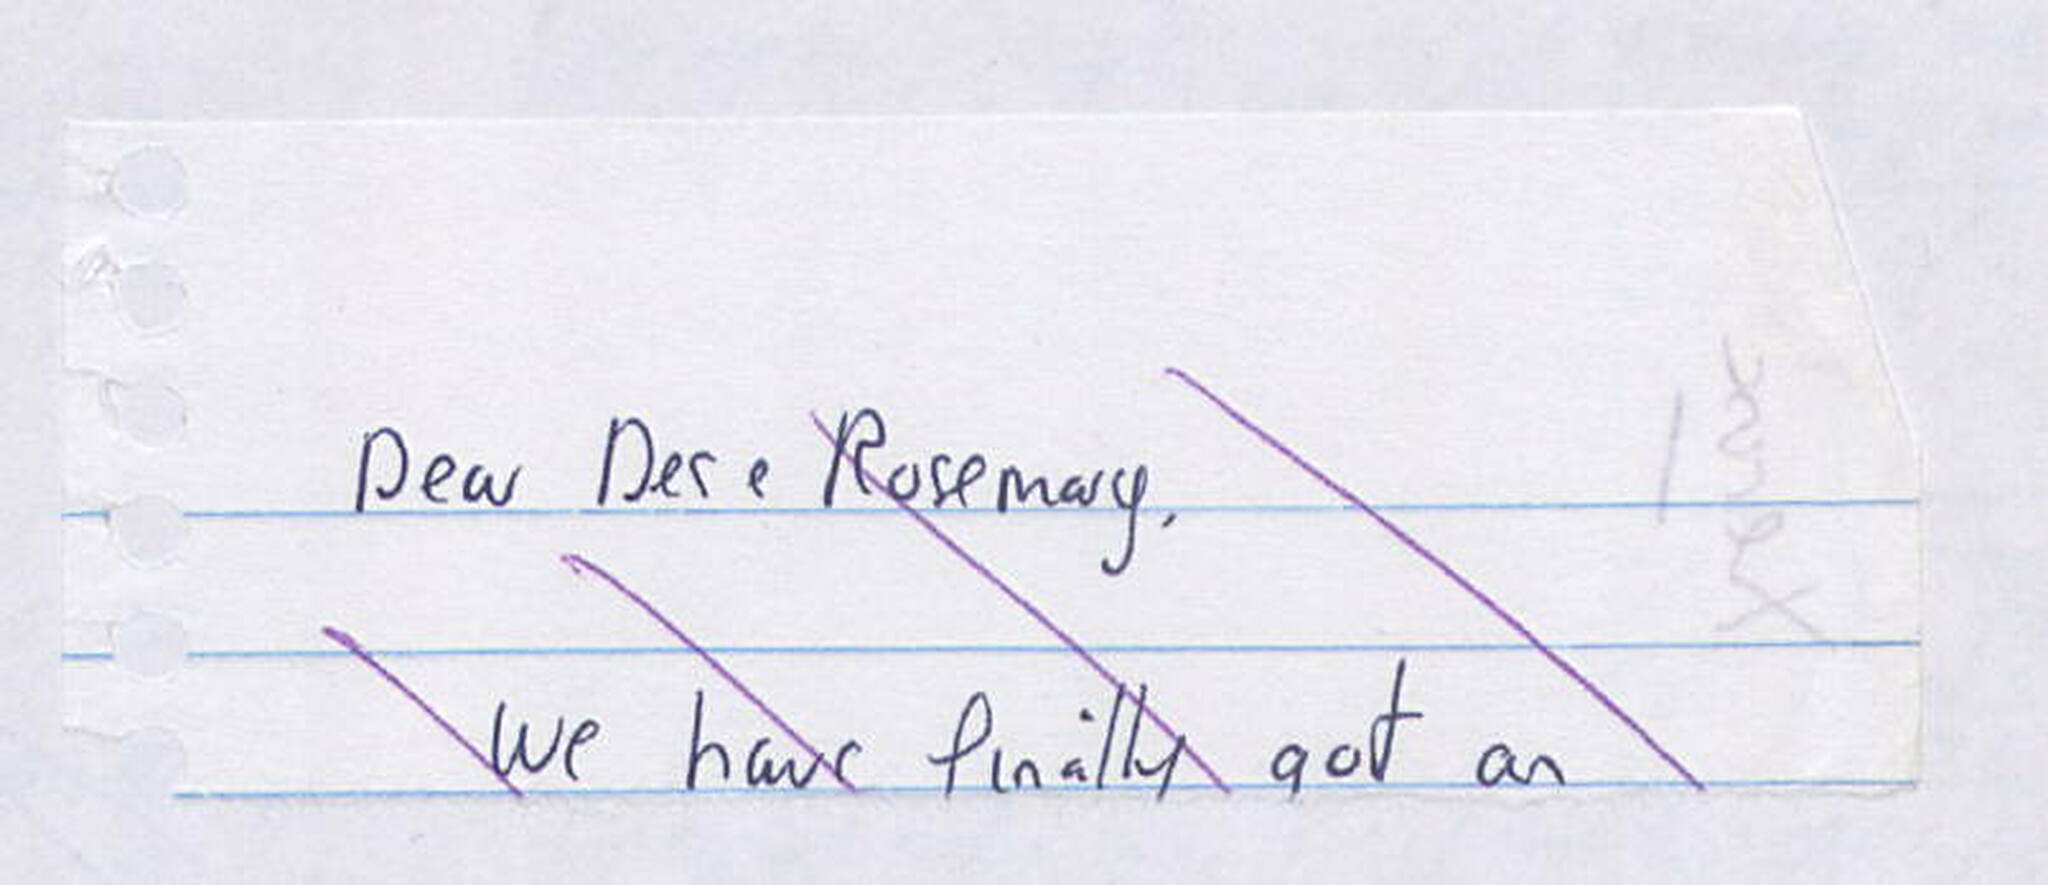 Dear Des e Rosemary,
We have finally got an